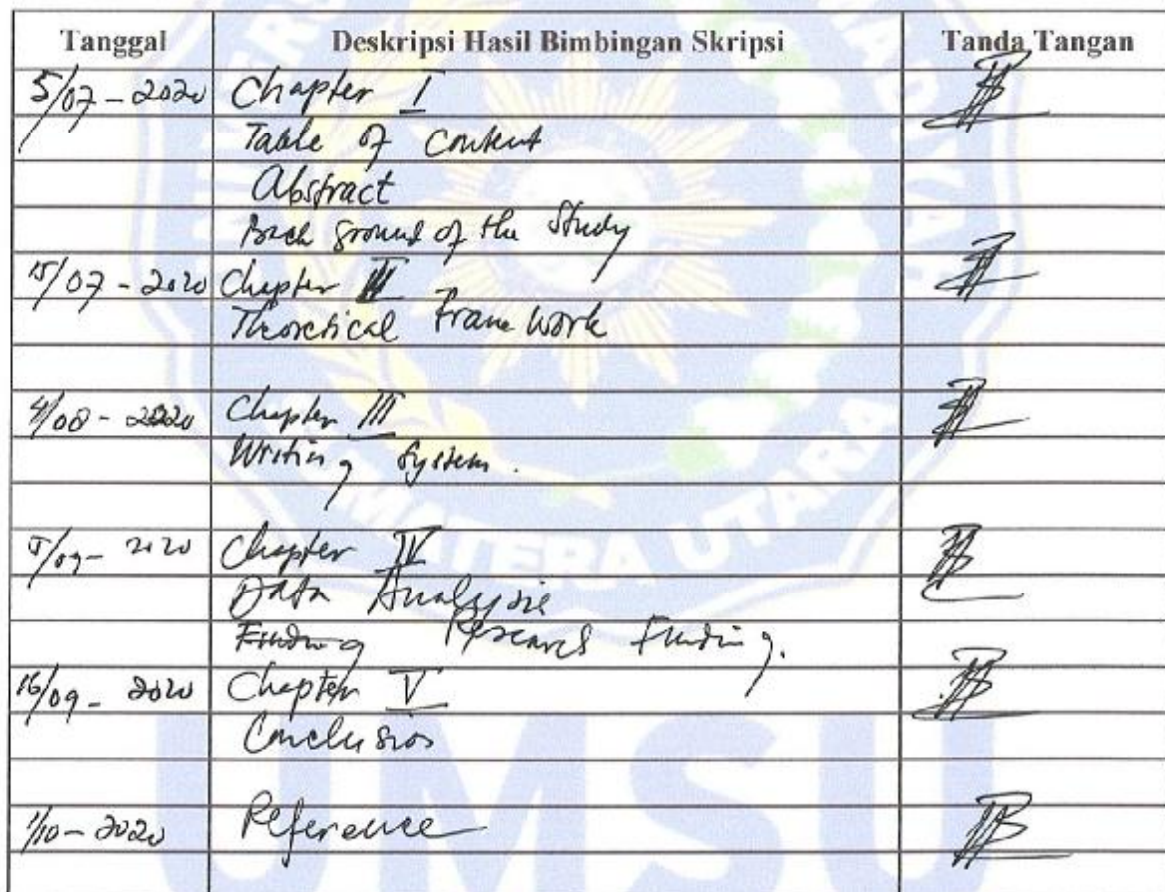 Tanggal Deskripsi Hasil Bimbingan Skripsi Tanda Tangan
5/07-2020 Chapter I
Table of Content
Abstract
Back ground of the Study
15/07-2020 Chapter II
Theoretical Frame work
4/08-2020 Chapter III
Writing System.
5/09-2020 Chapter IV
Data Analysis
Finding Research Finding.
16/09-2020 Chapter V
Conclusion
1/10-2020 Reference
MATERA UTARA
UMSU